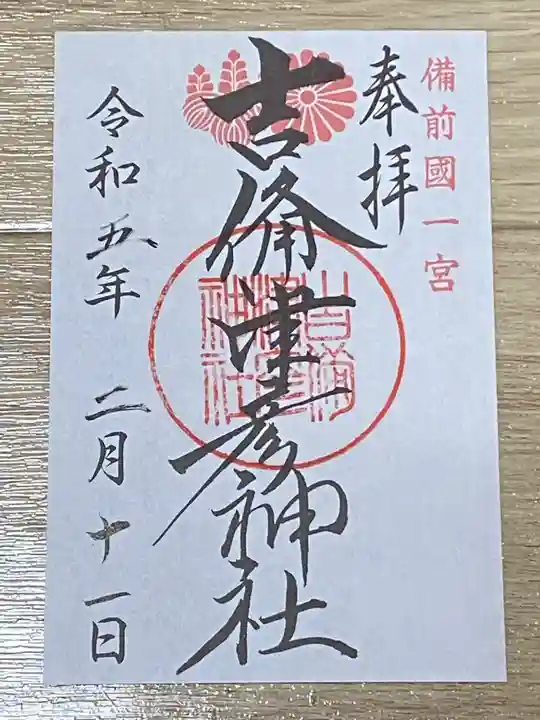 備前國一宮
奉拝
吉備津彦神社
吉備津彦神社
令和五年 二月十一日